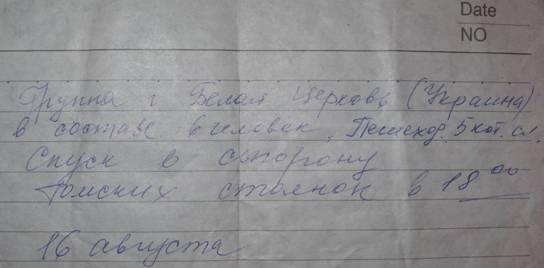 Date
NO
Группа г Белая Церковь (Украина)
в составе 6 человек. Пешеход. 5 кат. сл.
Спуск в сторону
Томских стоянок в 18 00
16 августа